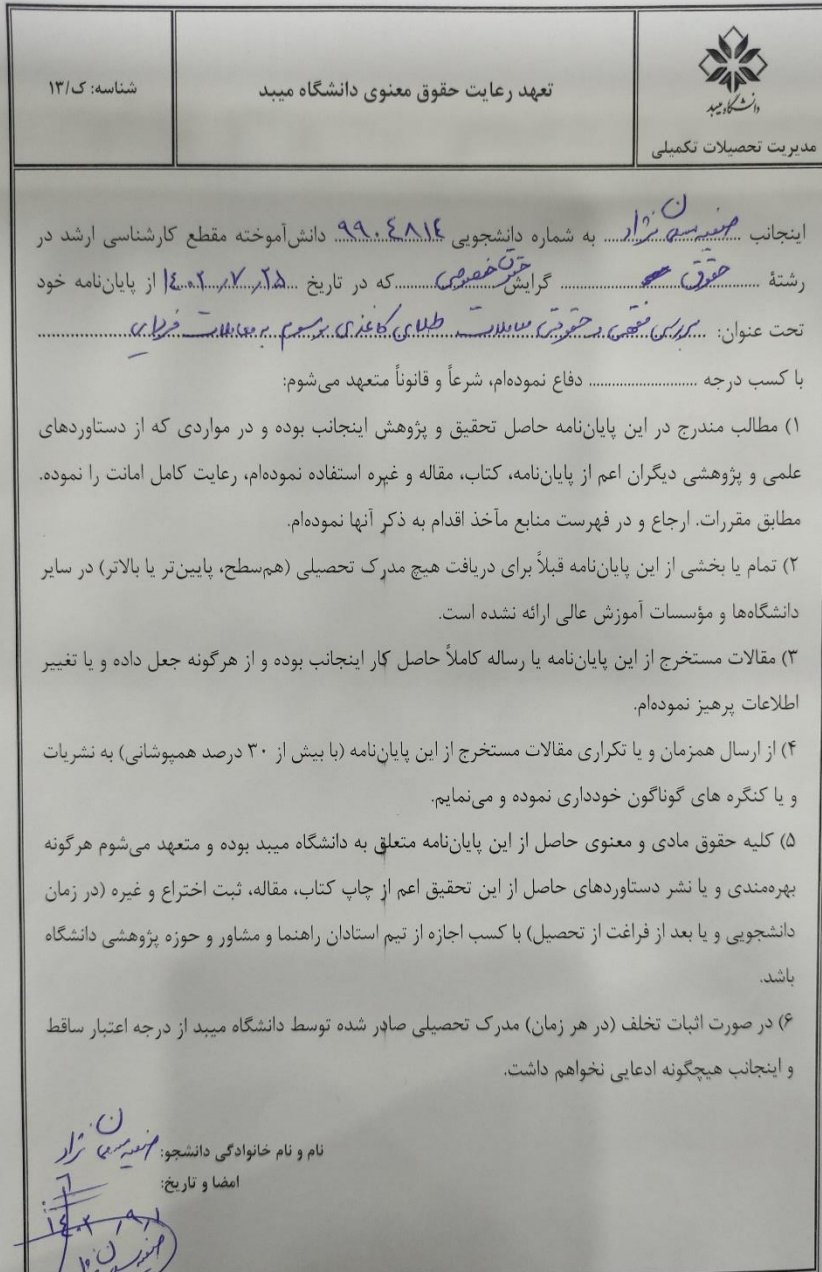 دانشگاه میبد
مدیریت تحصیلات تکمیلی
تعهد رعایت حقوق معنوی دانشگاه میبد
شناسه: ک/۱۳
اینجانب ........ نژاد ........ به شماره دانشجویی ۹۹۰۴۸۱۴ دانش‌آموخته مقطع کارشناسی ارشد در
رشتهٔ ........ حقوق ........ گرایش حقوق خصوصی ........ که در تاریخ ۱۴۰۲/۷/۲۵ از پایان‌نامه خود
تحت عنوان: بررسی فقهی و حقوقی معاملات طلای کاغذی موسوم به معاملات فردایی
با کسب درجه ........................ دفاع نموده‌ام، شرعاً و قانوناً متعهد می‌شوم:
۱) مطالب مندرج در این پایان‌نامه حاصل تحقیق و پژوهش اینجانب بوده و در مواردی که از دستاوردهای
علمی و پژوهشی دیگران اعم از پایان‌نامه، کتاب، مقاله و غیره استفاده نموده‌ام، رعایت کامل امانت را نموده.
مطابق مقررات. ارجاع و در فهرست منابع مآخذ اقدام به ذکر آنها نموده‌ام.
۲) تمام یا بخشی از این پایان‌نامه قبلاً برای دریافت هیچ مدرک تحصیلی (هم‌سطح، پایین‌تر یا بالاتر) در سایر
دانشگاه‌ها و مؤسسات آموزش عالی ارائه نشده است.
۳) مقالات مستخرج از این پایان‌نامه یا رساله کاملاً حاصل کار اینجانب بوده و از هرگونه جعل داده و یا تغییر
اطلاعات پرهیز نموده‌ام.
۴) از ارسال همزمان و یا تکراری مقالات مستخرج از این پایان‌نامه (با بیش از ۳۰ درصد همپوشانی) به نشریات
و یا کنگره های گوناگون خودداری نموده و می‌نمایم.
۵) کلیه حقوق مادی و معنوی حاصل از این پایان‌نامه متعلق به دانشگاه میبد بوده و متعهد می‌شوم هرگونه
بهره‌مندی و یا نشر دستاوردهای حاصل از این تحقیق اعم از چاپ کتاب، مقاله، ثبت اختراع و غیره (در زمان
دانشجویی و یا بعد از فراغت از تحصیل) با کسب اجازه از تیم استادان راهنما و مشاور و حوزه پژوهشی دانشگاه
باشد.
۶) در صورت اثبات تخلف (در هر زمان) مدرک تحصیلی صادر شده توسط دانشگاه میبد از درجه اعتبار ساقط
و اینجانب هیچگونه ادعایی نخواهم داشت.
نام و نام خانوادگی دانشجو: نژاد
امضا و تاریخ:
۱۴۰۲/۹/۱